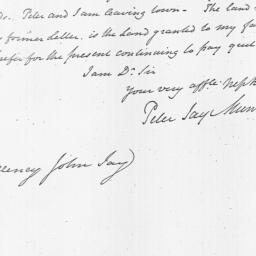 Peter and I am leaving town - The land
former letter. is the land granted to my fa
prefer for the present continuing to pay quit
I am Dr. Sir
your very affte. neph
Peter Jay Mun
John Jay)